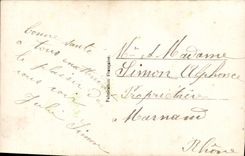 bonne santé
à tous
le plaisir de
vous voir
Julie Simon
Publication Française
Mr & Madame
Simon Alphonse
Propriétaire
Marnand
Rhône